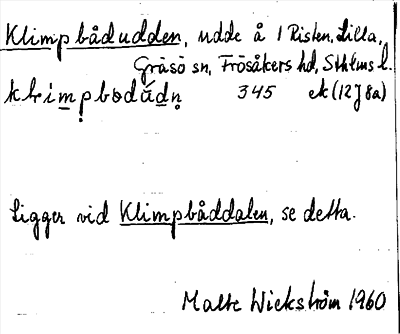 Klimpbådudden, udde å 1 Risten, Lilla,
Gräsö sn, Frösåkers hd, Sthlms l.
345 ek (12J8a)
Ligger vid Klimpbåddalen, se detta.
Malte Wickström 1960